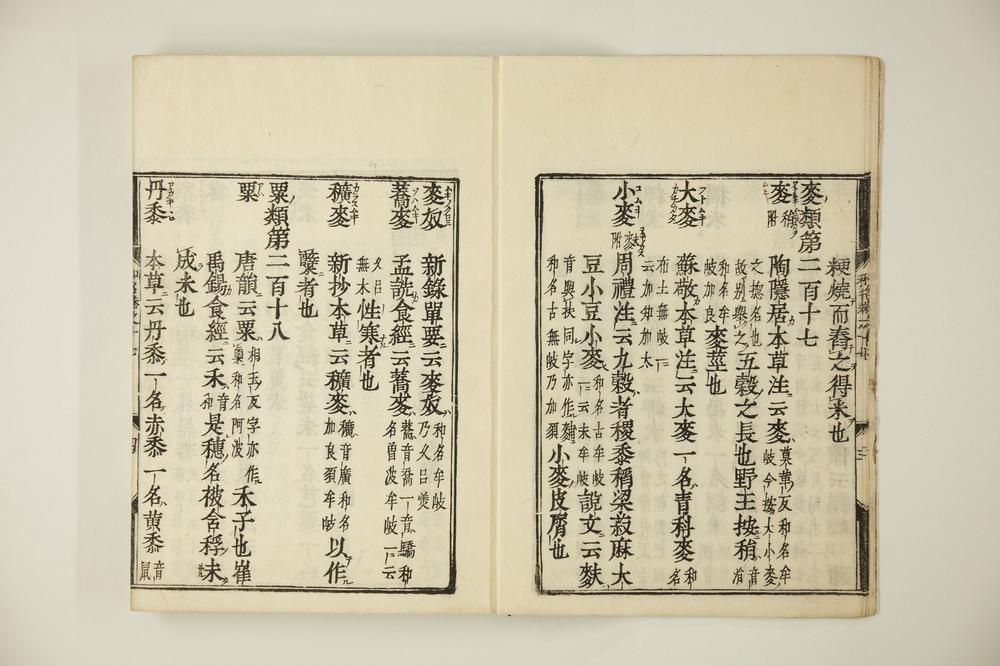 粳燒而舂之得米也
麥類第二百十七
麥 䅌附 陶隱居本草注云麥 莫革反和名牟岐今按大小麥之惣名也故別擧之 五穀之長也野王按䅌 音涓和名牟岐加良 麥莖也
大麥 蘇敬本草注云大麥一名青科麥 和名布土無岐一云加知加太
小麥 麩麥附 周禮注云九穀者稷黍稻粱菽麻大
豆小豆小麥 和名古牟岐一云末牟岐 說文云麩 音與扶同字亦作 和名古無岐乃加須 小麥皮屑也
麥奴 新錄單要云麥奴 和名牟岐乃久呂美
蕎麥 孟詵食經云蕎麥 蕎音喬一音驕和名曾波牟岐一云久呂無木 性寒者也
穬麥 新抄本草云穬麥 穬音廣和名加良須牟岐 以作
糵者也
粟類第二百十八
粟 唐韻云粟 相玉反字亦作 和名阿波 禾子也崔
禹錫食經云禾 音和 是穗名被含稃未
成米也
丹黍 本草云丹黍一名赤黍一名黄黍 音鼠